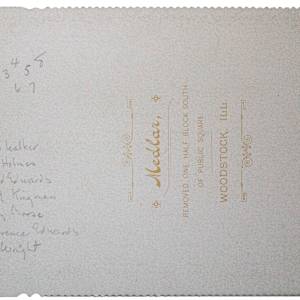 3 4 5 8
6 7
Holmes
Edwards
Kingman
Edwards
Wright
Medlar,
REMOVED ONE HALF BLOCK SOUTH
OF PUBLIC SQUARE.
WOODSTOCK, ILL.